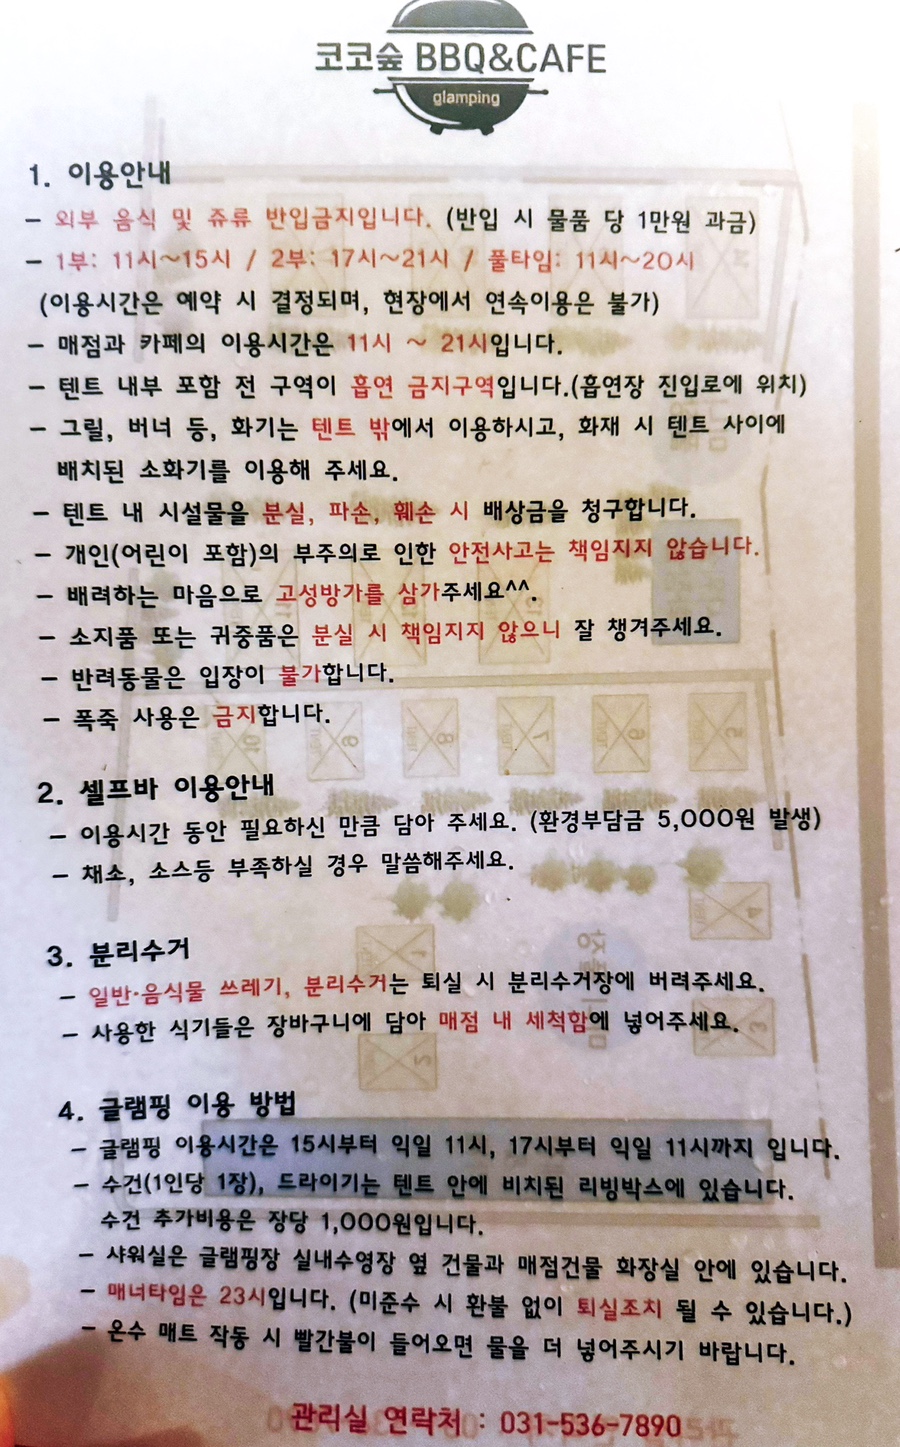 코코숲 BBQ&CAFE
glamping
1. 이용안내
– 외부 음식 및 쥬류 반입금지입니다. (반입 시 물품 당 1만원 과금)
– 1부: 11시~15시 / 2부: 17시~21시 / 풀타임: 11시~20시
(이용시간은 예약 시 결정되며, 현장에서 연속이용은 불가)
– 매점과 카페의 이용시간은 11시 ~ 21시입니다.
– 텐트 내부 포함 전 구역이 흡연 금지구역입니다.(흡연장 진입로에 위치)
– 그릴, 버너 등, 화기는 텐트 밖에서 이용하시고, 화재 시 텐트 사이에
배치된 소화기를 이용해 주세요.
– 텐트 내 시설물을 분실, 파손, 훼손 시 배상금을 청구합니다.
– 개인(어린이 포함)의 부주의로 인한 안전사고는 책임지지 않습니다.
– 배려하는 마음으로 고성방가를 삼가주세요^^.
– 소지품 또는 귀중품은 분실 시 책임지지 않으니 잘 챙겨주세요.
– 반려동물은 입장이 불가합니다.
– 폭죽 사용은 금지합니다.
2. 셀프바 이용안내
– 이용시간 동안 필요하신 만큼 담아 주세요. (환경부담금 5,000원 발생)
– 채소, 소스등 부족하실 경우 말씀해주세요.
3. 분리수거
– 일반·음식물 쓰레기, 분리수거는 퇴실 시 분리수거장에 버려주세요.
– 사용한 식기들은 장바구니에 담아 매점 내 세척함에 넣어주세요.
4. 글램핑 이용 방법
– 글램핑 이용시간은 15시부터 익일 11시, 17시부터 익일 11시까지 입니다.
– 수건(1인당 1장), 드라이기는 텐트 안에 비치된 리빙박스에 있습니다.
수건 추가비용은 장당 1,000원입니다.
– 샤워실은 글램핑장 실내수영장 옆 건물과 매점건물 화장실 안에 있습니다.
– 매너타임은 23시입니다. (미준수 시 환불 없이 퇴실조치 될 수 있습니다.)
– 온수 매트 작동 시 빨간불이 들어오면 물을 더 넣어주시기 바랍니다.
관리실 연락처 : 031-536-7890